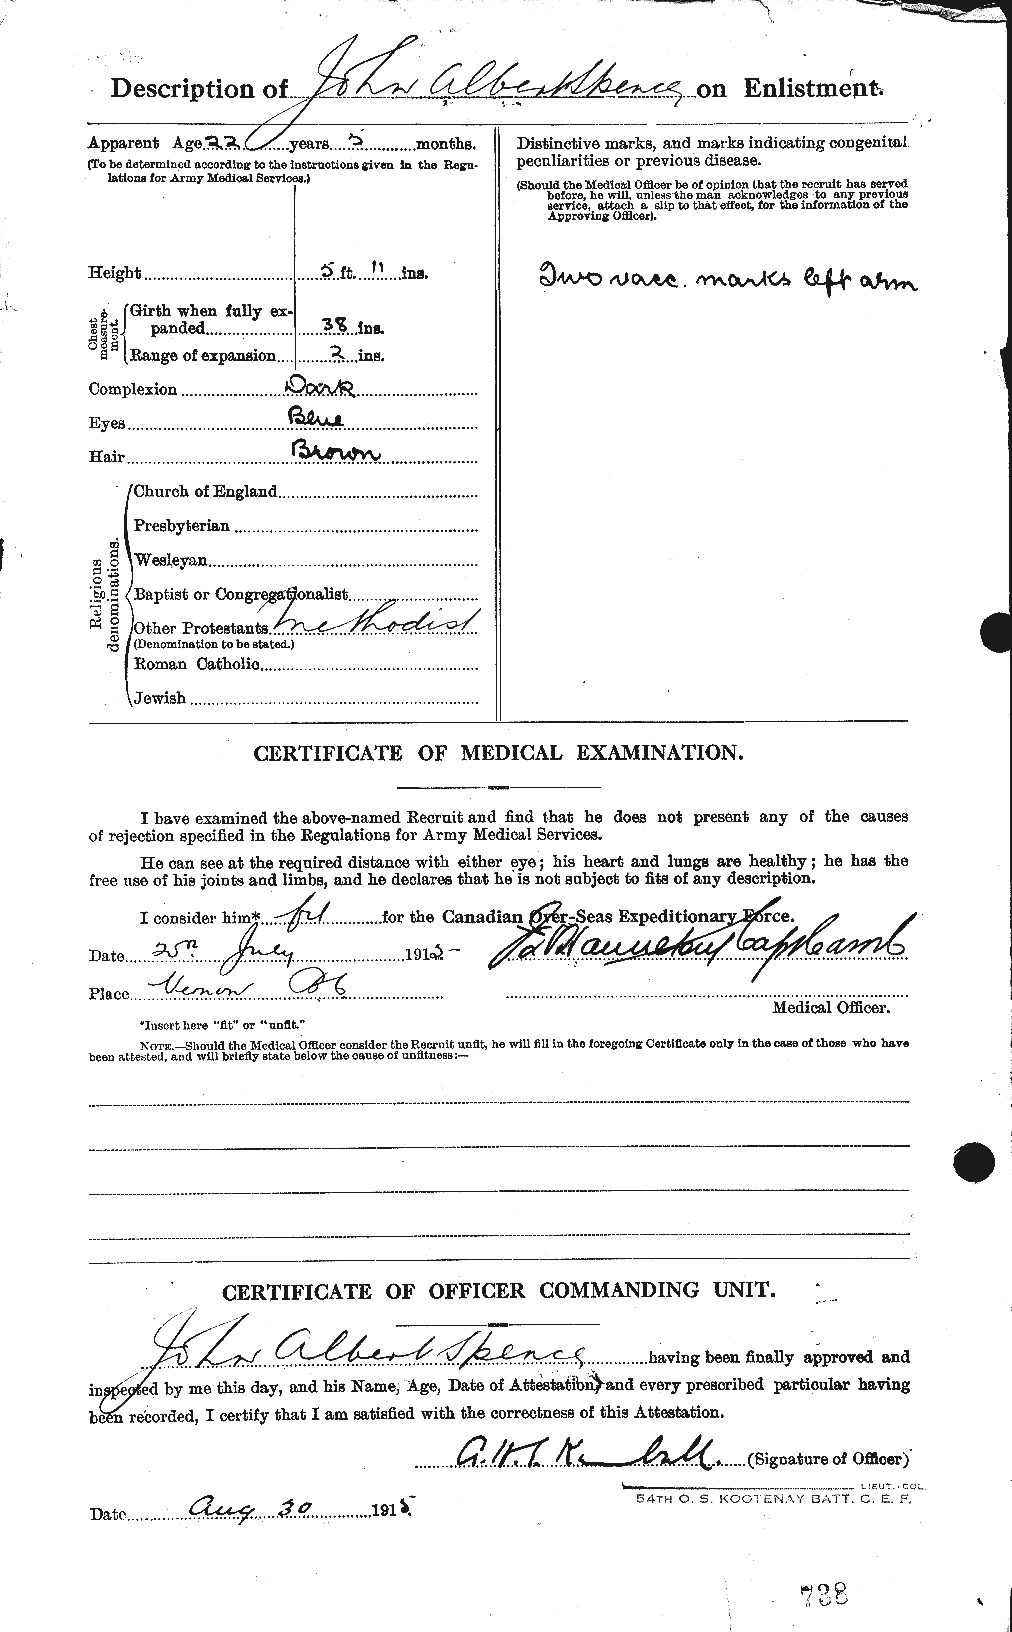 Description of John Albert Spence on Enlistment.
Apparent Age 22 years 5 months.
(To be determined according to the instructions given in the Regu-
lations for Army Medical Services.)
Height 5 ft. 11 ins.
Chest measurement.
Girth when fully ex-
panded 38 ins.
Range of expansion 2 ins.
Complexion Dark
Eyes Blue
Hair Brown
Religious denominations.
Church of England
Presbyterian
Wesleyan
Baptist or Congregationalist
Other Protestants Methodist
(Denomination to be stated.)
Roman Catholic
Jewish
Distinctive marks, and marks indicating congenital
peculiarities or previous disease.
(Should the Medical Officer be of opinion that the recruit has served
before, he will, unless the man acknowledges to any previous
service, attach a slip to that effect, for the information of the
Approving Officer).
Two vacc. marks left arm
CERTIFICATE OF MEDICAL EXAMINATION.
I have examined the above-named Recruit and find that he does not present any of the causes
of rejection specified in the Regulations for Army Medical Services.
He can see at the required distance with either eye; his heart and lungs are healthy; he has the
free use of his joints and limbs, and he declares that he is not subject to fits of any description.
I consider him* fit for the Canadian Over-Seas Expeditionary Force.
Date 25th July 1915
Capt Camb
Place Vernon BC
Medical Officer.
*Insert here "fit" or "unfit."
NOTE.—Should the Medical Officer consider the Recruit unfit, he will fill in the foregoing Certificate only in the case of those who have
been attested, and will briefly state below the cause of unfitness:—
CERTIFICATE OF OFFICER COMMANDING UNIT.
John Albert Spence having been finally approved and
inspected by me this day, and his Name, Age, Date of Attestation, and every prescribed particular having
been recorded, I certify that I am satisfied with the correctness of this Attestation.
(Signature of Officer)
LIEUT.-COL.
54TH O. S. KOOTENAY BATT. C. E. F.
Date Aug 30 1915
738